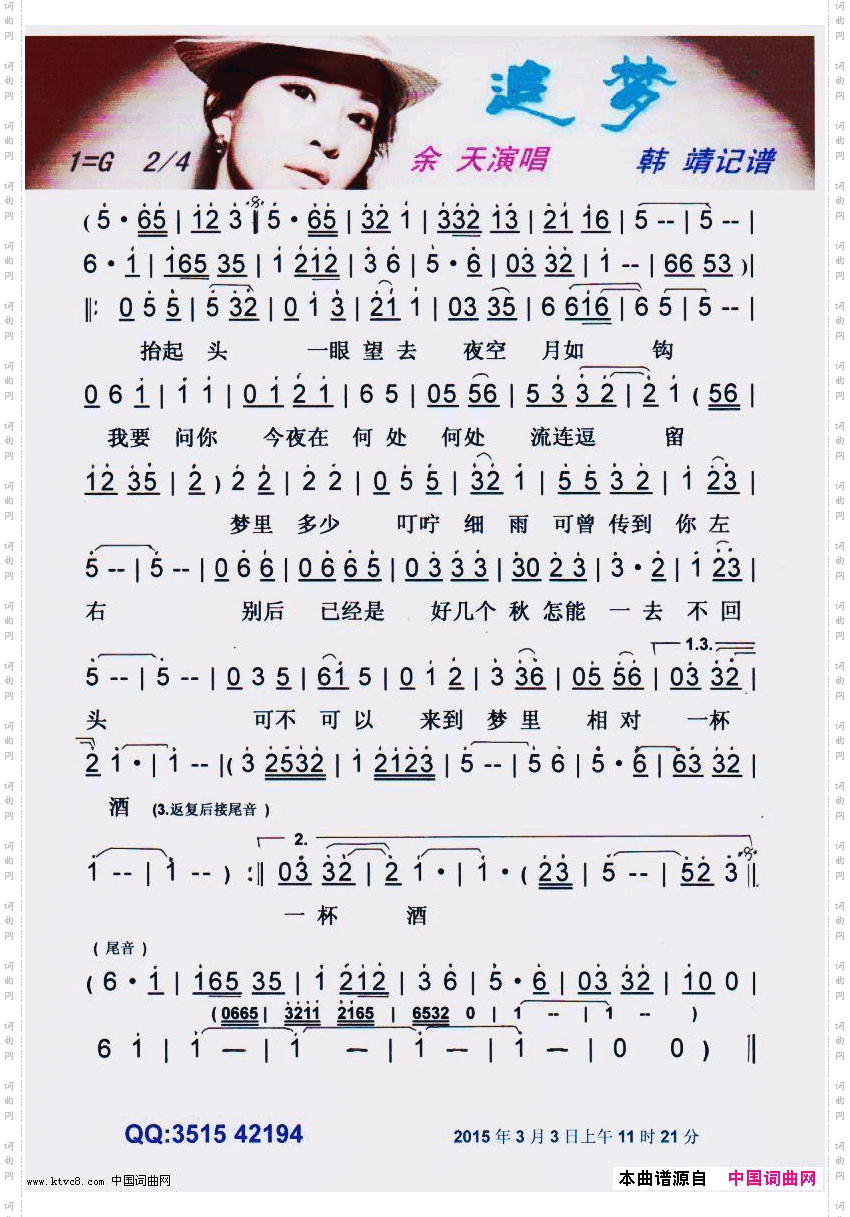 追梦
1=G 2/4 余 天演唱 韩 靖记谱
( 5 · 65 | 12 3 | 5 · 65 | 32 1 | 332 13 | 21 16 | 5 -- | 5 -- |
6 · 1 | 165 35 | 1 212 | 3 6 | 5 · 6 | 03 32 | 1 -- | 66 53 ) |
‖: 0 5 5 | 5 32 | 0 1 3 | 21 1 | 03 35 | 6 616 | 6 5 | 5 -- |
抬起 头 一眼 望 去 夜空 月如 钩
0 6 1 | 1 1 | 0 1 2 1 | 6 5 | 05 56 | 5 3 3 2 | 2 1 ( 56 |
我要 问你 今夜在 何 处 何处 流连逗 留
12 35 | 2 ) 2 2 | 2 2 | 0 5 5 | 32 1 | 5 5 3 2 | 1 23 |
梦里 多少 叮咛 细 雨 可曾 传到 你 左
5 -- | 5 -- | 0 6 6 | 0 6 6 5 | 0 3 3 3 | 30 2 3 | 3 · 2 | 1 23 |
右 别后 已经是 好几个 秋 怎能 一 去 不 回
1.3.
5 -- | 5 -- | 0 3 5 | 61 5 | 0 1 2 | 3 36 | 05 56 | 03 32 |
头 可不 可 以 来到 梦 里 相 对 一杯
2 1 · | 1 -- | ( 3 2532 | 1 2123 | 5 -- | 5 6 | 5 · 6 | 63 32 |
酒 (3.返复后接尾音 )
2.
1 -- | 1 -- ) :‖ 03 32 | 2 1 · | 1 · ( 23 | 5 -- | 52 3 ‖
一 杯 酒
( 尾音 )
( 6 · 1 | 165 35 | 1 212 | 3 6 | 5 · 6 | 03 32 | 10 0 |
( 0665 | 3211 2165 | 6532 0 | 1 -- | 1 -- )
6 1 | 1 — | 1 — | 1 — | 1 — | 0 0 ) ‖
QQ:3515 42194 2015 年 3 月 3 日上午 11 时 21 分
www.ktvc8.com 中国词曲网 本曲谱源自 中国词曲网